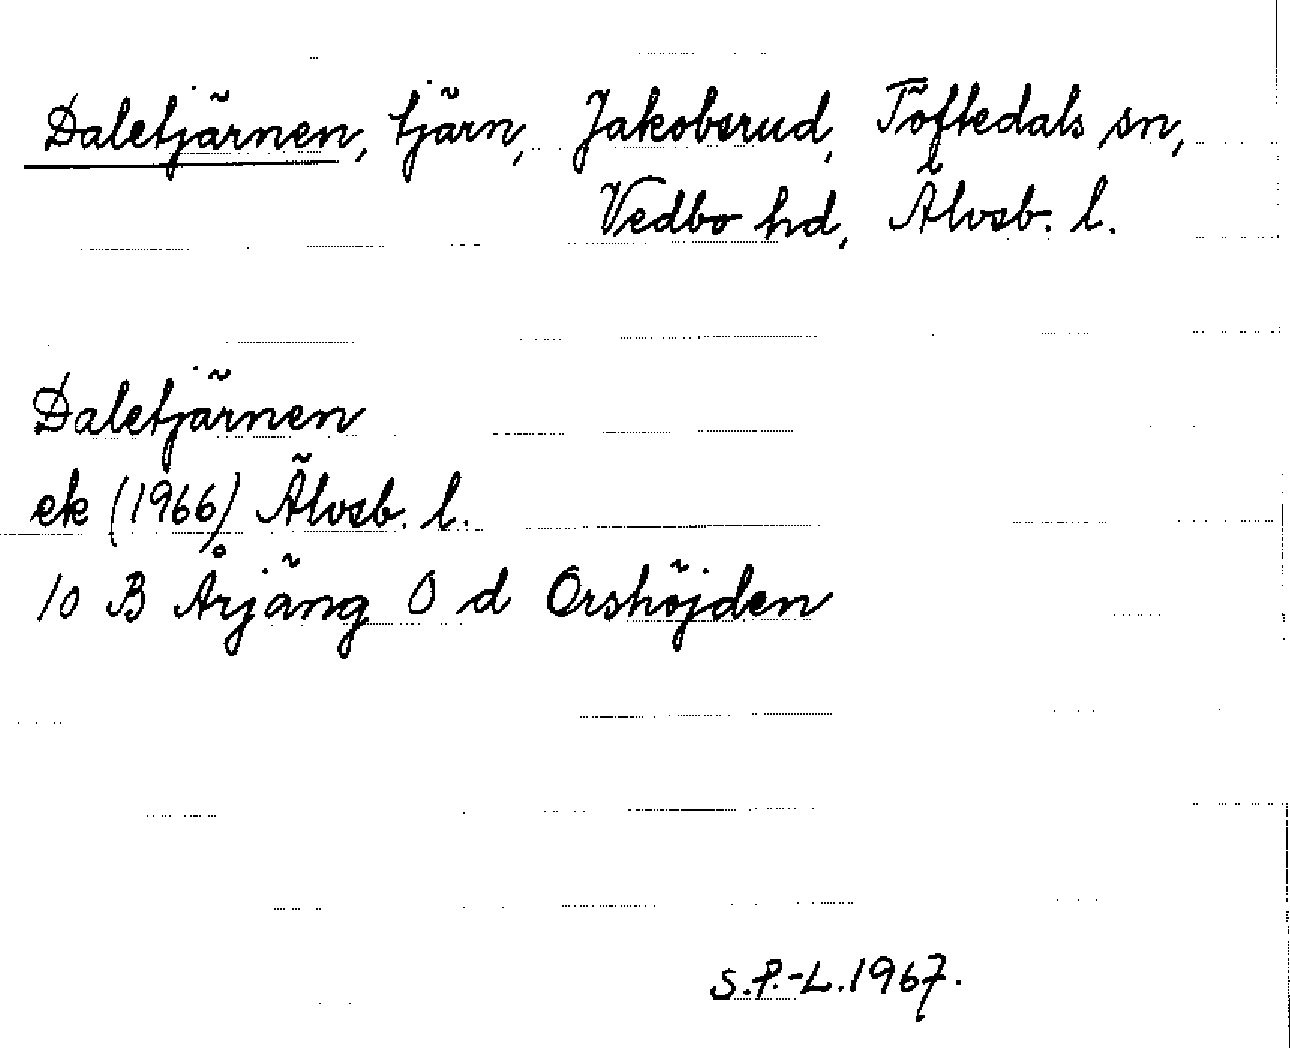 Daletjärnen, tjärn, Jakobsrud, Töftedals sn,
Vedbo hd, Älvsb. l.
Daletjärnen
ek (1966) Älvsb. l.
10 B Årjäng 0 d Orshöjden
S.P.-L.1967.